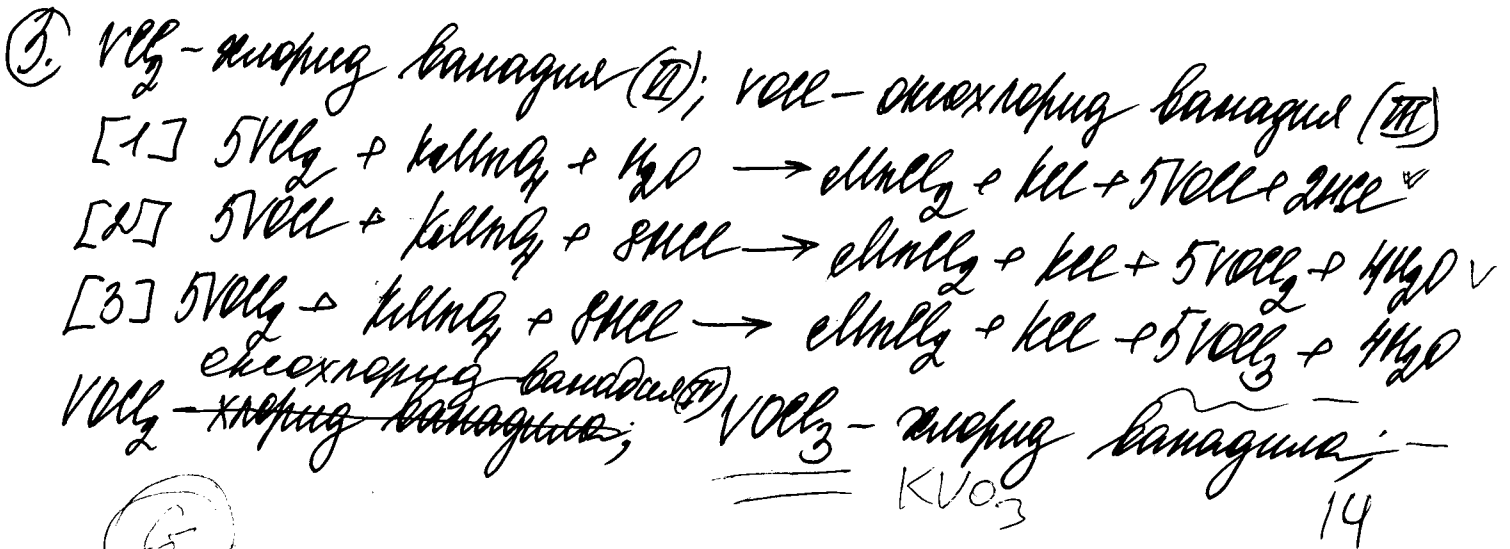 3. VCl₂ – хлорид ванадия (II); VOCl – оксохлорид ванадия (III)
[1] 5VCl₂ + KMnO₄ + H₂O → MnCl₂ + KCl + 5VOCl + 2HCl v
[2] 5VOCl + KMnO₄ + 8HCl → MnCl₂ + KCl + 5VOCl₂ + 4H₂O v
[3] 5VOCl₂ + KMnO₄ + 8HCl → MnCl₂ + KCl + 5VOCl₃ + 4H₂O
оксохлорид ванадия (IV)
VOCl₂ – хлорид ванадила; VOCl₃ – хлорид ванадила; –
KVO₃
14
5